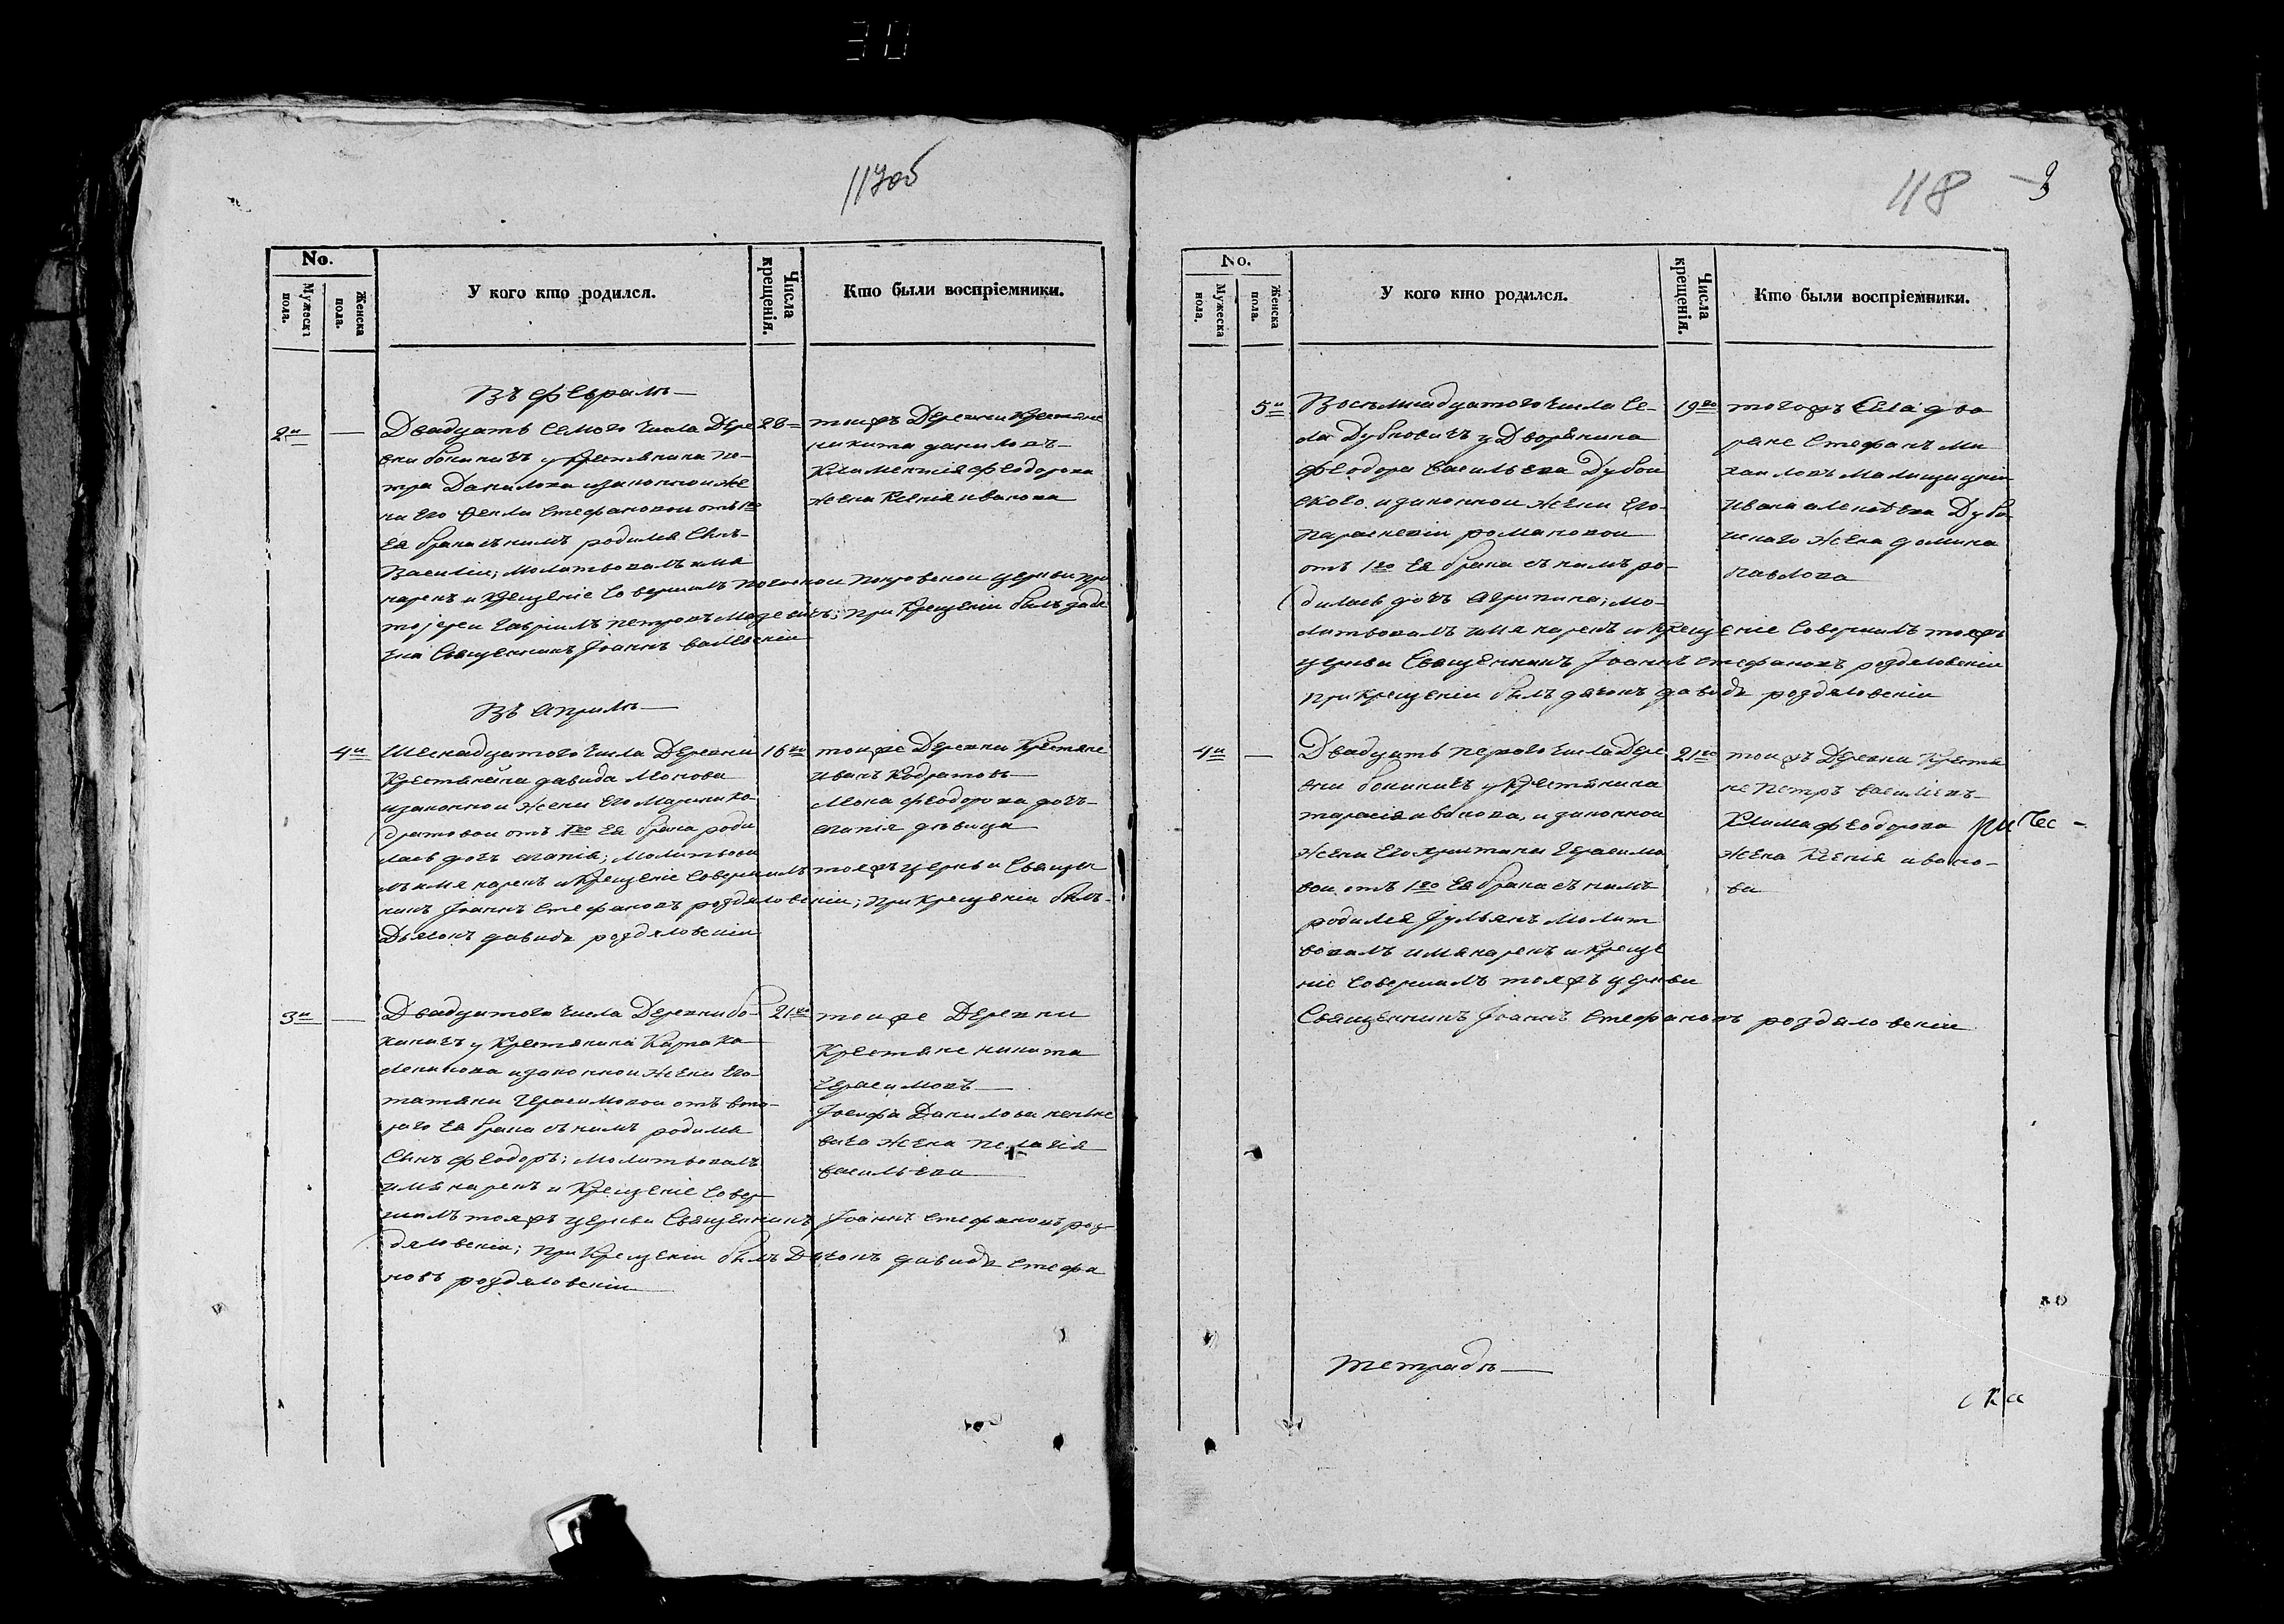 30
117об
No.
Мужескъ пола.
Женска пола.
У кого кто родился.
Числа крещенія.
Кто были воспріемники.
Въ Февралѣ
2й — Двадцать Семого Числа Дере 28
вни у крестянина Пе-
тра Данилова изаконной же
ны Его Феклы Стефановой отъ 1го
Ея брака съ нимъ родился Сынъ
Василій; Молитвовалъ имя
нарекъ и Крещеніе Совершилъ Покровской церкви
Гавріилъ Петровъ при Крещеніи былъ
Священникъ Іоаннъ
тойже Деревни Крестяне
никита даниловъ
Климентія Феодорова
жена Ксенія иванова
Въ Априлѣ
4й Шеснадцатого Числа Деревни 16го
Крестянина давида Леонова
изаконной жены Его Марыны Ко-
дратовой отъ 1го Ея брака роди
лась дочъ Агапія; Молитвова
лъ имя нарекъ и Крещеніе Совершилъ тояжъ церкви Священ
никъ Іоаннъ Стефановъ роздяловскій; при Крещеніи былъ
Дьяконъ давидъ роздяловскій
тойже Деревни Крестяне
Иванъ Кодратовъ
Леона Феодорова дочъ
агапія дѣвица
3й — Двадцатого Числа Деревни бо- 21го
у Крестянина
изаконной жены Его
татяны Герасимовой отъ вто-
раго Ея брака съ нимъ родился
Сынъ Феодоръ; Молитвовалъ
имя нарекъ и Крещеніе Совер-
шилъ тояжъ церкви Священникъ Іоаннъ Стефановъ роз-
дяловскій; при Крещеніи былъ Дьяконъ давидъ Стефа
новъ роздяловскій
тойже Деревни
Крестяне никита
Герасимовъ
Іосифа Данилова
жена Пелагія
васильева
118
3
No.
Мужеска пола.
Женска пола.
У кого кто родился.
Числа крещенія.
Кто были воспріемники.
5й Восъмнадцатого Числа Се- 19го
ла Дубновичъ у Дворянина
Феодора Васильева Дубои
ского изаконной жены Его
Параскевіи романовой
отъ 1го Ея брака съ нимъ ро-
дилась дочъ Агрипина; Мо-
литвовалъ имя нарекъ и Крещеніе Совершилъ тояжъ
церкви Священникъ Іоаннъ стефановъ роздяловскій
при Крещеніи былъ дяконъ давидъ роздяловскій
тогожъ Села дво
ряне Стефанъ Ми
хаиловъ
Ивана Дубо-
жена домина
павлова
4й — Двадцать первого Числа Дере 21го
вни у Крестянина
тарасія иванова, и законной
жены Его христины Герасимо
вой отъ 1го Ея брака съ нимъ
родился Іульянъ Молит
вовалъ имя нарекъ и Креще
ніе Совершилъ тояжъ церкви
Священникъ Іоаннъ Стефановъ роздяловскій
тойжъ Деревни Крестя
не Петръ василіевъ
Клима Феодорова
жена Ксенія ивано-
ва
тетрадь